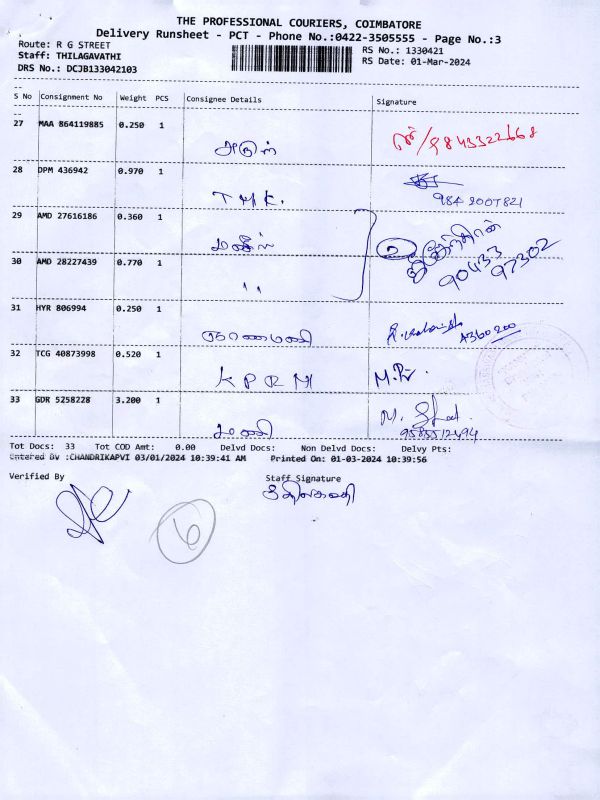 THE PROFESSIONAL COURIERS, COIMBATORE
Delivery Runsheet - PCT - Phone No.:0422-3505555 - Page No.:3
Route: R G STREET
RS No.: 1330421
Staff: THILAGAVATHI
RS Date: 01-Mar-2024
DRS No.: DCJB133042103
S No Consignment No Weight PCS Consignee Details Signature
27 MAA 864119885 0.250 1
அருள்
28 DPM 436942 0.970 1
T H K.
29 AMD 27616186 0.360 1
90433
97302
30 AMD 28227439 0.770 1
"
31 HYR 806994 0.250 1
32 TCG 40873998 0.520 1
K P R M
33 GDR 5258228 3.200 1
மணி
Tot Docs: 33 Tot COD Amt: 0.00 Delvd Docs: Non Delvd Docs: Delvy Pts:
Entered By :CHANDRIKAPVI 03/01/2024 10:39:41 AM Printed On: 01-03-2024 10:39:56
Verified By
Staff Signature
6